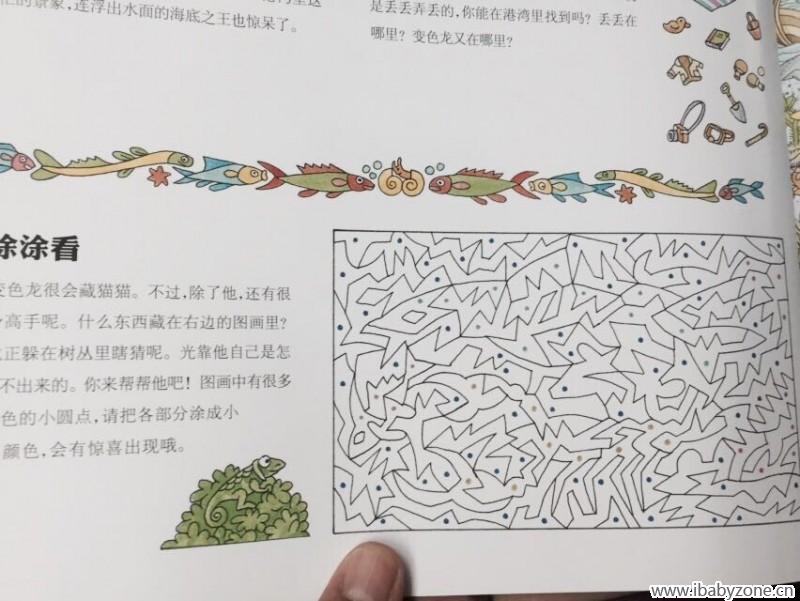 的景象，连浮出水面的海底之王也惊呆了。
是丢丢弄丢的，你能在港湾里找到吗？丢丢在
哪里？变色龙又在哪里？
涂涂看
变色龙很会藏猫猫。不过，除了他，还有很
高手呢。什么东西藏在右边的图画里？
正躲在树丛里瞎猜呢。光靠他自己是怎
不出来的。你来帮帮他吧！图画中有很多
色的小圆点，请把各部分涂成小
颜色，会有惊喜出现哦。
www.ibabyzone.cn